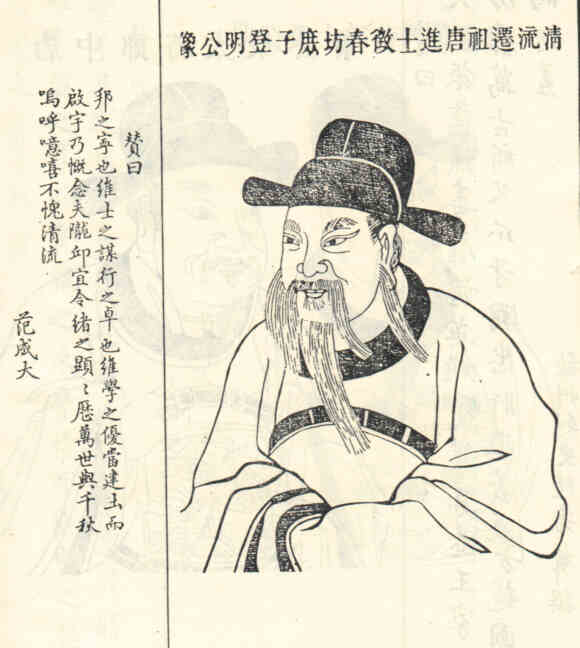 清流遷祖唐進士徵春坊庶子登明公象
贊曰
邦之寧也維士之謀行之卓也維學之優當建圡而
啟宇乃慨念夫隴邱宜令緒之顯〻歷萬世與千秋
嗚呼噫嘻不愧清流
范成大